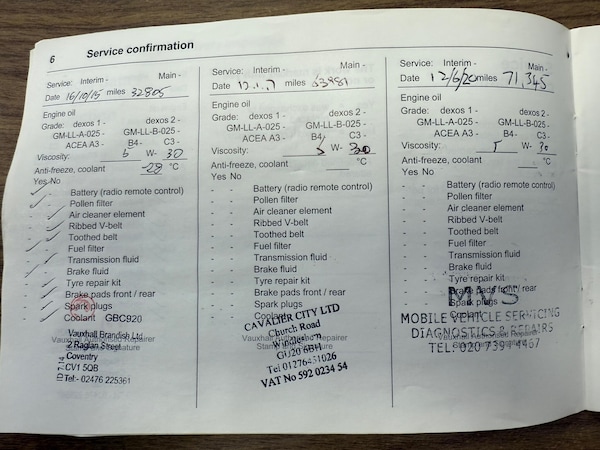 6 Service confirmation
Service: Interim - Main -
Date 16/10/15 miles 32805
Engine oil
Grade: dexos 1 - dexos 2 -
GM-LL-A-025 - GM-LL-B-025 -
ACEA A3 - B4- C3 -
Viscosity: 5 W- 30
Anti-freeze, coolant -28 °C
Yes No
Battery (radio remote control)
Pollen filter
Air cleaner element
Ribbed V-belt
Toothed belt
Fuel filter
Transmission fluid
Brake fluid
Tyre repair kit
Brake pads front / rear
Spark plugs
Coolant GBC920
Vauxhall Brandish Ltd
2 Raglan Street
Coventry
CV1 5QB
Tel:- 02476 225361
Vauxhall Authorised Repairer
Service: Interim - Main -
Date miles
Engine oil
Grade: dexos 1 - dexos 2 -
GM-LL-A-025 - GM-LL-B-025 -
ACEA A3 - B4- C3 -
Viscosity: 5 W- 30
Anti-freeze, coolant °C
Yes No
- - Battery (radio remote control)
- - Pollen filter
- - Air cleaner element
- - Ribbed V-belt
- - Toothed belt
- - Fuel filter
- - Transmission fluid
- - Brake fluid
- - Tyre repair kit
- - Brake pads front / rear
- - Spark plugs
- - Coolant
CAVALIER CITY LTD
Church Road
GU20 6BH
Tel 01276451026
VAT No 592 0234 54
Vauxhall Authorised Repairer
Service: Interim - Main -
Date 12/6/20 miles 71,345
Engine oil
Grade: dexos 1 - dexos 2 -
GM-LL-A-025 - GM-LL-B-025 -
ACEA A3 - B4- C3 -
Viscosity: 5 W- 30
Anti-freeze, coolant °C
Yes No
- - Battery (radio remote control)
- - Pollen filter
- - Air cleaner element
- - Ribbed V-belt
- - Toothed belt
- - Fuel filter
- - Transmission fluid
- - Brake fluid
- - Tyre repair kit
- - Brake pads front / rear
- - Spark plugs
- - Coolant
MVS
MOBILE VEHICLE SERVICING
DIAGNOSTICS & REPAIRS
TEL: 020 7394 4467
Vauxhall Authorised Repairer